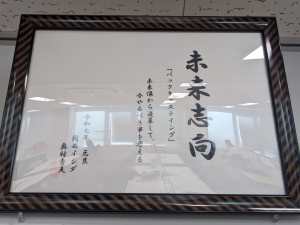 未来志向
「バックキャスティング」
未来像から逆算して、
今やるべき事を考える
令和元年 元旦